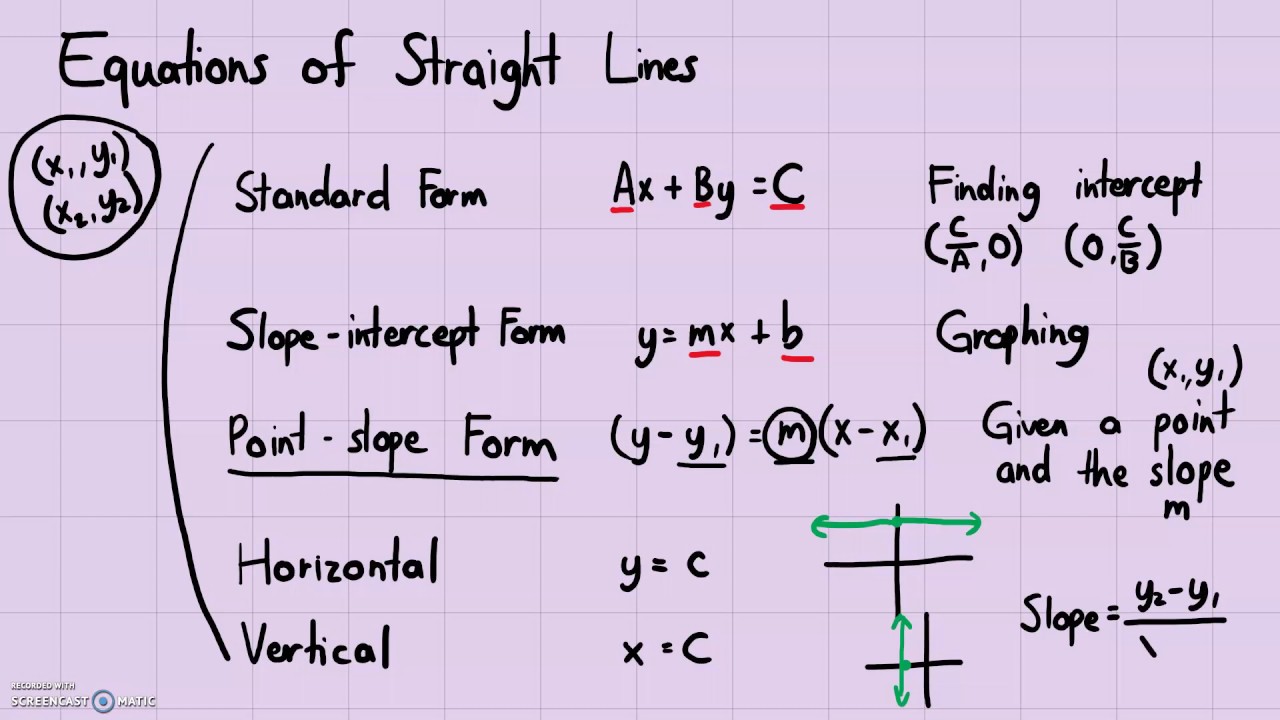 Equations of Straight Lines
(x₁, y₁)
(x₂, y₂)
Standard Form Ax + By = C Finding intercept
(C/A, 0) (0, C/B)
Slope-intercept Form y = mx + b Graphing
(x₁, y₁)
Point-slope Form (y - y₁) = m(x - x₁) Given a point
and the slope
m
Horizontal y = c
Slope = y₂ - y₁
Vertical x = C
RECORDED WITH
SCREENCAST MATIC